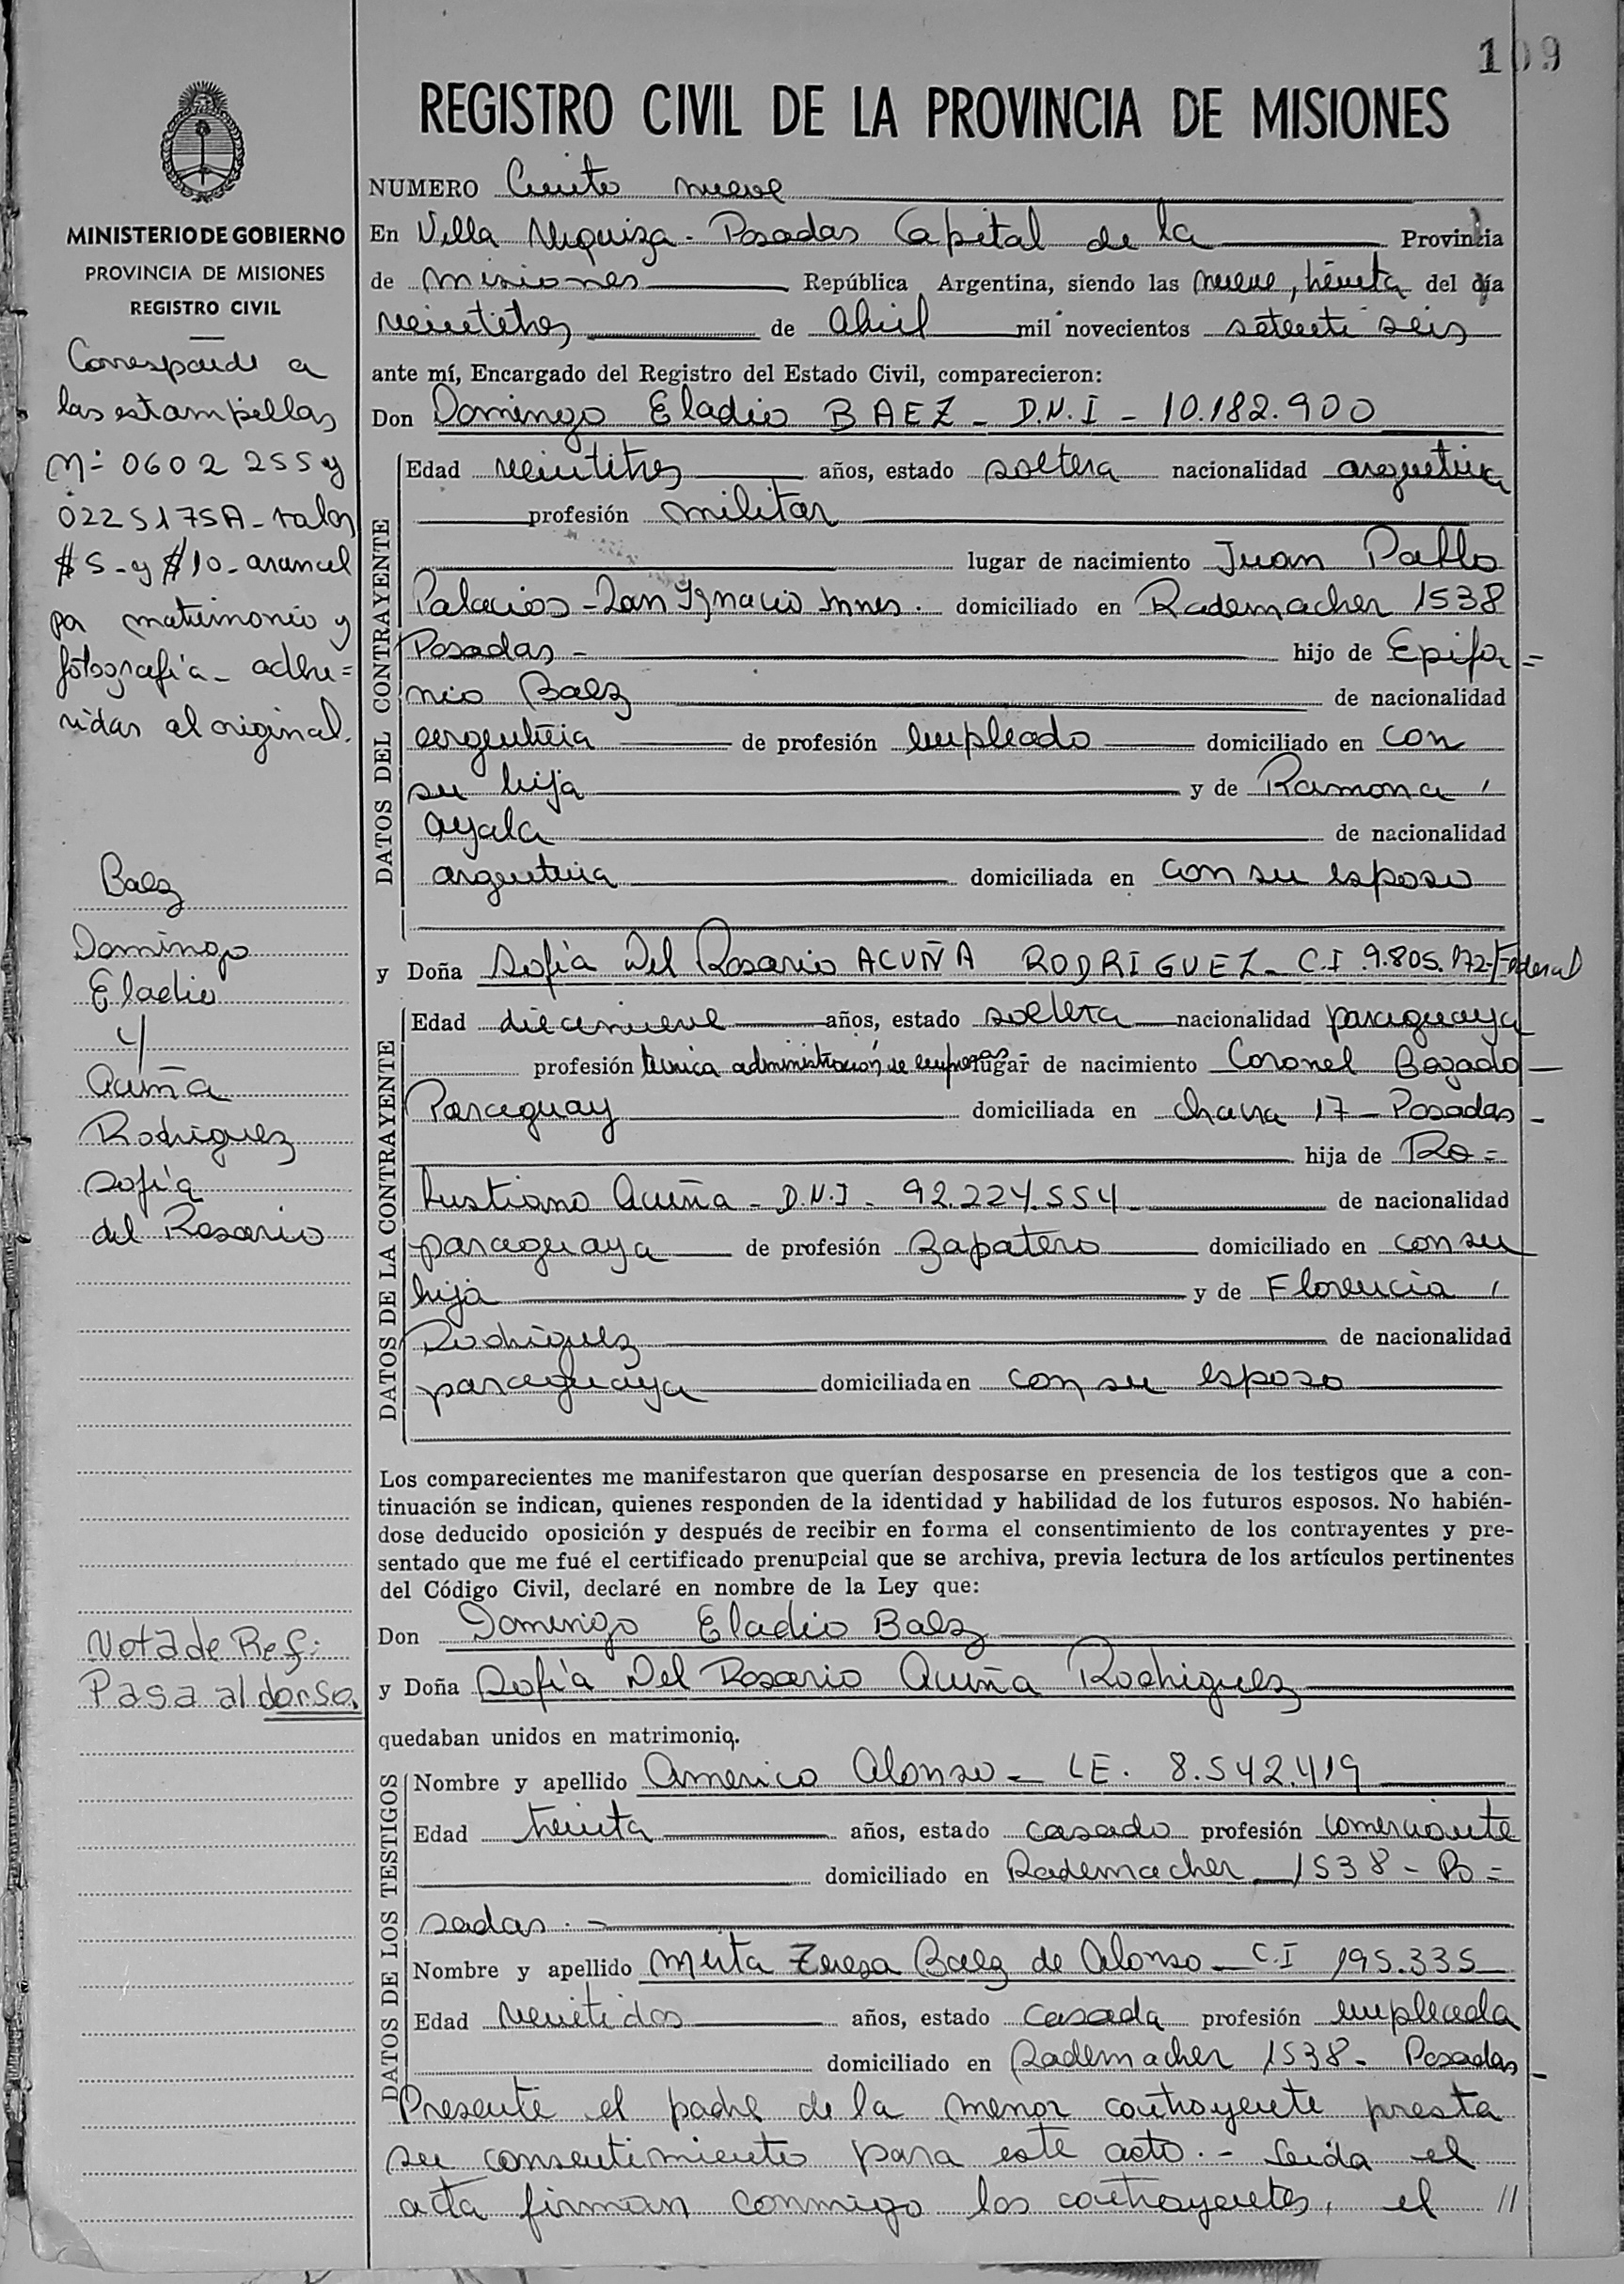 109
REGISTRO CIVIL DE LA PROVINCIA DE MISIONES
MINISTERIO DE GOBIERNO
PROVINCIA DE MISIONES
REGISTRO CIVIL
Corresponde a
las estampillas
Nº 0602255 y
0225175A - valor
$5 - y $10 - arancel
por matrimonio y
fotografía - adhe=
ridas al original.
Baez
Domingo
Eladio
y
Acuña
Rodriguez
Sofía
del Rosario
Nota de Ref:
Pasa al dorso.
NUMERO Ciento nueve
En Villa Urquiza - Posadas Capital de la Provincia
de Misiones República Argentina, siendo las nueve, treinta del día
veintitres de Abril mil novecientos setenta seis
ante mí, Encargado del Registro del Estado Civil, comparecieron:
Don Domingo Eladio BAEZ - D.N.I - 10.182.900
DATOS DEL CONTRAYENTE
Edad veintitres años, estado soltero nacionalidad argentina
profesión militar
lugar de nacimiento Juan Pablo
Palacios - San Ignacio Mnes. domiciliado en Rademacher 1538
Posadas - hijo de Epifa=
nio Baez de nacionalidad
argentina de profesión empleado domiciliado en con
su hijo y de Ramona
Ayala de nacionalidad
argentina domiciliada en con su esposo
y Doña Sofía Del Rosario ACUÑA RODRIGUEZ - C.I 9.805.172 - Federal
DATOS DE LA CONTRAYENTE
Edad diecinueve años, estado soltera nacionalidad paraguaya
profesión técnica administración de empresas lugar de nacimiento Coronel Bogado -
Paraguay domiciliada en chacra 17 - Posadas -
hija de Ro=
bustiano Acuña - D.N.I - 92.224.554 de nacionalidad
paraguaya de profesión Zapatero domiciliado en con su
hija y de Florencia
Rodriguez de nacionalidad
paraguaya domiciliada en con su esposo
Los comparecientes me manifestaron que querían desposarse en presencia de los testigos que a con-
tinuación se indican, quienes responden de la identidad y habilidad de los futuros esposos. No habién-
dose deducido oposición y después de recibir en forma el consentimiento de los contrayentes y pre-
sentado que me fué el certificado prenupcial que se archiva, previa lectura de los artículos pertinentes
del Código Civil, declaré en nombre de la Ley que:
Don Domingo Eladio Baez
y Doña Sofía Del Rosario Acuña Rodriguez
quedaban unidos en matrimonio.
DATOS DE LOS TESTIGOS
Nombre y apellido Americo Alonso - LE. 8.542.419
Edad treinta años, estado casado profesión comerciante
domiciliado en Rademacher 1538 - Po=
sadas. -
Nombre y apellido Mirta Teresa Baez de Alonso - C.I 195.335
Edad veintidos años, estado casada profesión empleada
domiciliado en Rademacher 1538 - Posadas -
Presente el padre de la menor contrayente presta
su consentimiento para este acto. - Leida el
acta firman conmigo los contrayentes, el //